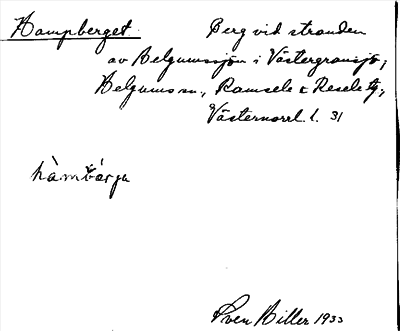 Hampberget. Berg vid stranden
av Helgumssjön i Västergransjö,
Helgums sn., Ramsele & Resele tg.,
Västernorrl. l. 31
hàmbárja
Sven Hiller 1933